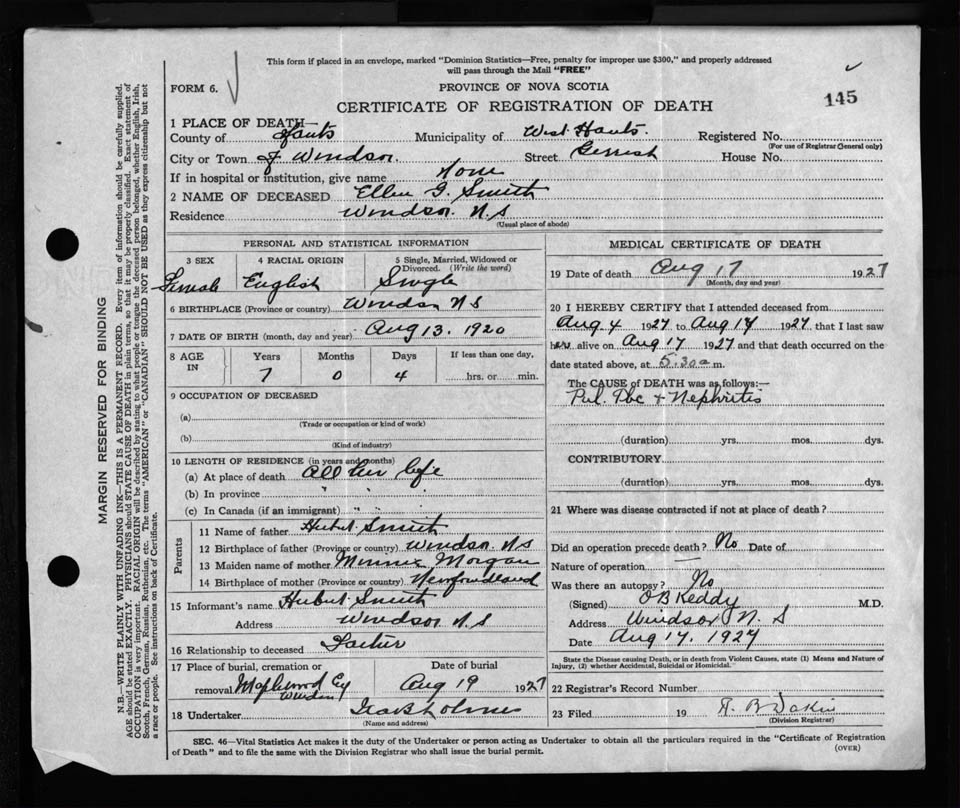 This form if placed in an envelope, marked "Dominion Statistics—Free, penalty for improper use $300," and properly addressed
will pass through the Mail "FREE"
FORM 6.
PROVINCE OF NOVA SCOTIA
CERTIFICATE OF REGISTRATION OF DEATH
145
1 PLACE OF DEATH—
County of Hants Municipality of West Hants. Registered No.
(For use of Registrar General only)
City or Town of Windsor. Street Gerrish House No.
If in hospital or institution, give name None
2 NAME OF DECEASED Ellen G. Smith
Residence Windsor. N.S
(Usual place of abode)
PERSONAL AND STATISTICAL INFORMATION
3 SEX 4 RACIAL ORIGIN 5 Single, Married, Widowed or Divorced. (Write the word)
Female English Single
6 BIRTHPLACE (Province or country) Windsor N S
7 DATE OF BIRTH (month, day and year) Aug 13. 1920
8 AGE IN Years Months Days If less than one day,
7 0 4 hrs. or min.
9 OCCUPATION OF DECEASED
(a)
(Trade or occupation or kind of work)
(b)
(Kind of industry)
10 LENGTH OF RESIDENCE (in years and months)
(a) At place of death All her life
(b) In province " "
(c) In Canada (if an immigrant) " "
Parents
11 Name of father Hubert Smith
12 Birthplace of father (Province or country) Windsor N S
13 Maiden name of mother Minnie Morgan
14 Birthplace of mother (Province or country) Newfoundland
15 Informant's name Hubert Smith
Address Windsor N S
16 Relationship to deceased Father
17 Place of burial, cremation or removal Maplewood Cy Windsor
Date of burial Aug 19 1927
18 Undertaker
(Name and address)
MEDICAL CERTIFICATE OF DEATH
19 Date of death Aug 17 1927
(Month, day and year)
20 I HEREBY CERTIFY that I attended deceased from
Aug. 4 1927 to Aug 17 1927 that I last saw
her alive on Aug 17 1927 and that death occurred on the
date stated above, at 5.30 a m.
The CAUSE of DEATH was as follows:—
Pul. Tbc + Nephritis
(duration) yrs. mos. dys.
CONTRIBUTORY
(duration) yrs. mos. dys.
21 Where was disease contracted if not at place of death?
Did an operation precede death? No Date of
Nature of operation —
Was there an autopsy? No
(Signed) O B Keddy M.D.
Address Windsor N. S
Date Aug 17. 1927
State the Disease causing Death, or in death from Violent Causes, state (1) Means and Nature of
Injury, (2) whether Accidental, Suicidal or Homicidal.
22 Registrar's Record Number
23 Filed 19
(Division Registrar)
SEC. 46—Vital Statistics Act makes it the duty of the Undertaker or person acting as Undertaker to obtain all the particulars required in the "Certificate of Registration
of Death" and to file the same with the Division Registrar who shall issue the burial permit.
(OVER)
MARGIN RESERVED FOR BINDING
N.B.—WRITE PLAINLY WITH UNFADING INK—THIS IS A PERMANENT RECORD. Every item of information should be carefully supplied.
AGE should be stated EXACTLY. PHYSICIANS should STATE CAUSE OF DEATH in plain terms, so that it may be properly classified. Exact statement of
OCCUPATION is very important. RACIAL ORIGIN will be described by stating to what people or tongue the deceased person belonged, whether English, Irish,
Scotch, French, German, Russian, Ruthenian, etc. The terms "AMERICAN" or "CANADIAN" SHOULD NOT BE USED as they express citizenship but not
a race or people. See instructions on back of Certificate.